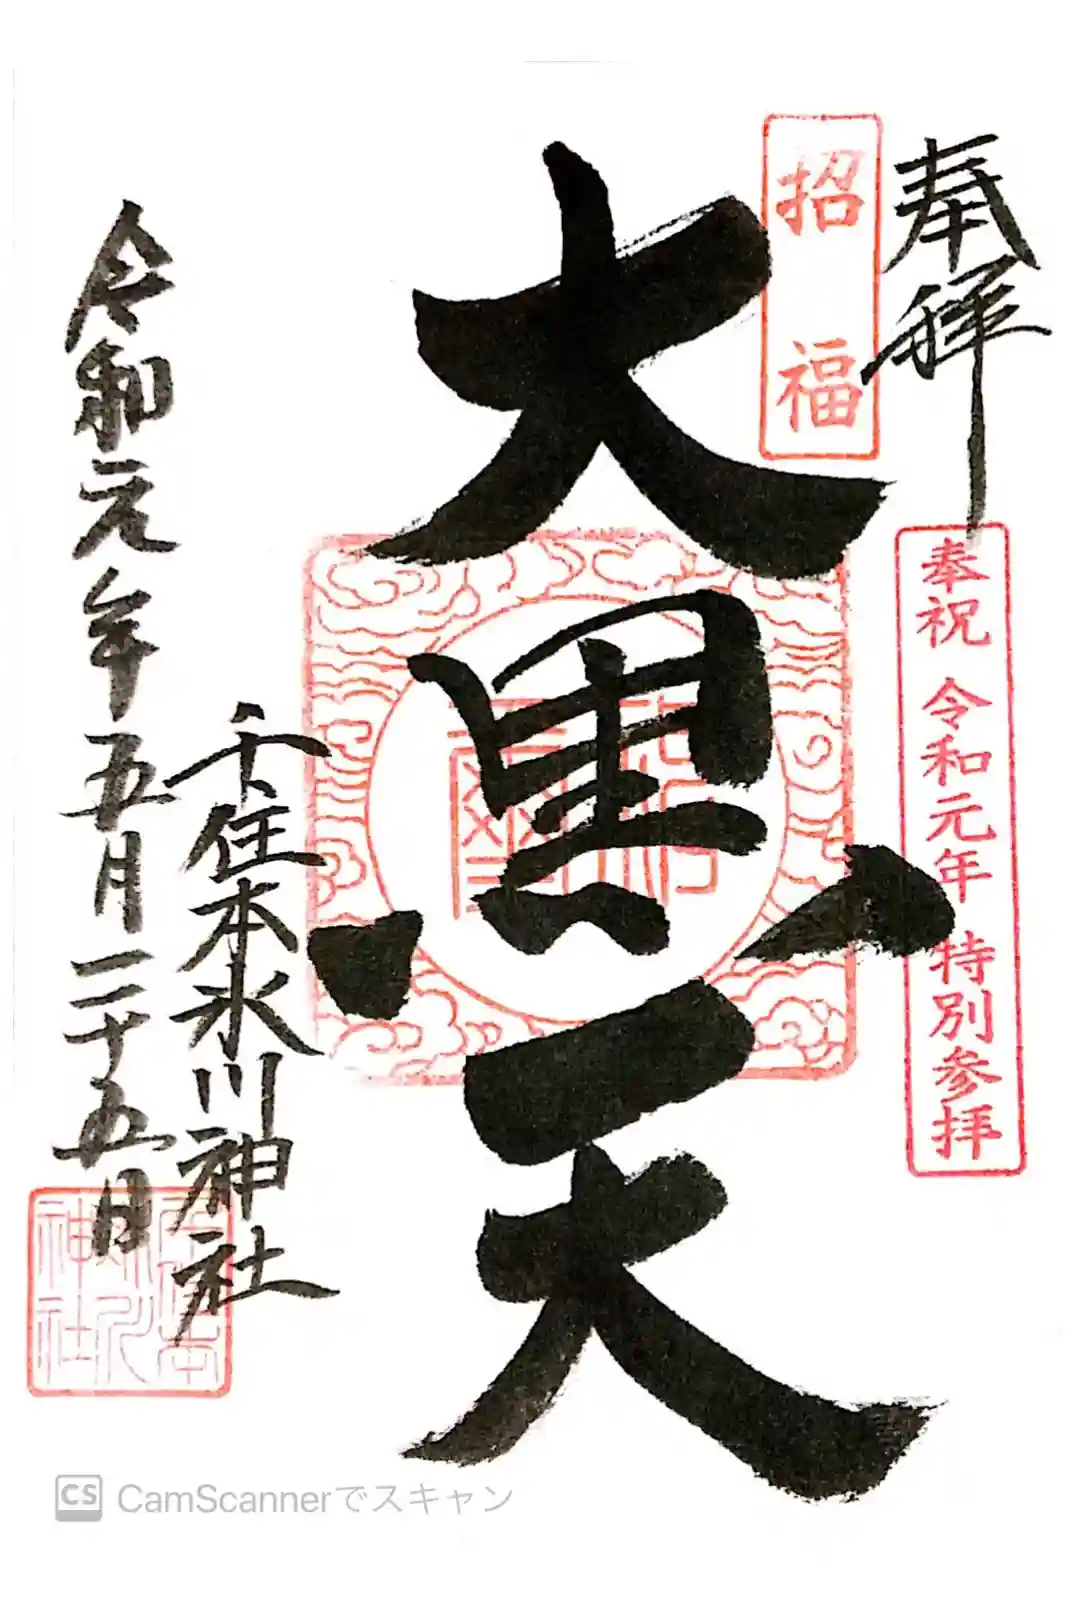 奉拝
奉祝 令和元年 特別参拝
招福
大黒天
千住本氷川神社
令和元年五月二十五日
CS CamScannerでスキャン